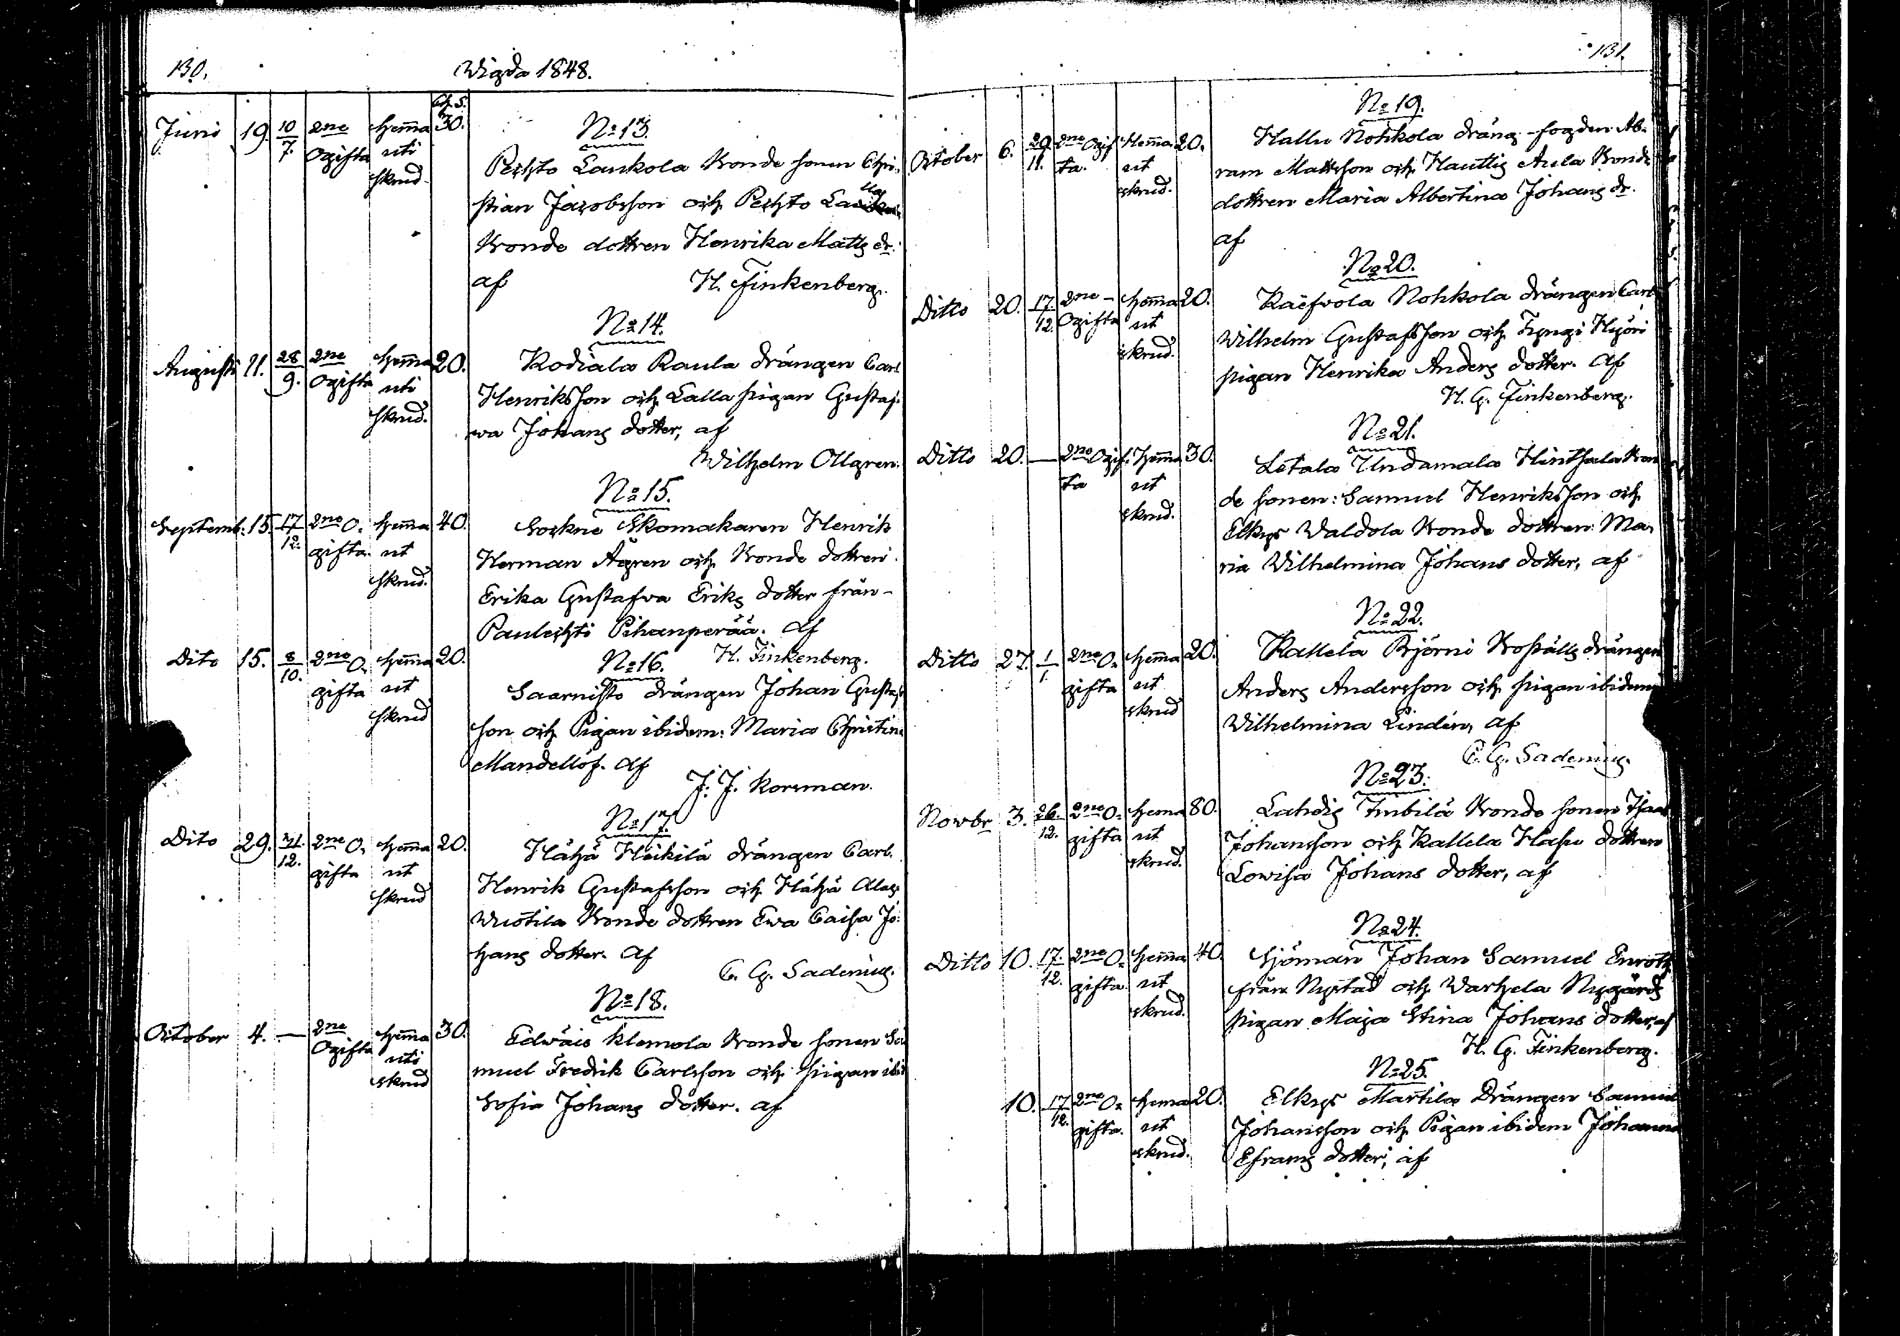 130.
Wigda 1848.
Juni 19. 10/7. 2ne Ogifta Hem̄a uti skrud. 30.
No 13.
Peshto Laukola Bonde sonen Chri-
stian Jacobsson och Peshto
Bonde dottren Henrika Matts dr.
af H. Finkenberg.
Augusti 11. 28/9. 2ne Ogifta Hem̄a uti skrud. 20.
No 14.
Kodiala Raula drängen Carl
Henriksson och Lalla pigan Gustaf-
wa Johans dotter, af
Wilhelm Ollgren.
Septemb. 15. 17/12. 2ne O- gifta. Hem̄a ut skrud. 40.
No 15.
Sockne Skomakaren Henrik
Herman Ågren och Bonde dottren
Erika Gustafva Eriks dotter från
Paulechti Pihanperää. af
H. Finkenberg.
Dito 15. 8/10. 2ne O- gifta Hem̄a ut skrud 20.
No 16.
Saarnisto drängen Johan Gustaf-
son och Pigan ibidem: Maria Christina
Mandellöf. af
J. J. Korsman.
Dito 29. /12. 2ne O- gifta Hem̄a ut skrud 20.
No 17.
Hähä Heikilä drängen Carl
Henrik Gustafsson och Hähä
Wuotila Bonde dottren Ewa Caisa Jo-
hans dotter. af
C. G. Sadenius.
October 4. — 2ne Ogifta Hem̄a uti skrud 30.
No 18.
Edwäis Klemola Bonde sonen Sa
muel Fredrik Carlsson och pigan ibi
Sofia Johans dotter. af
131.
October 6. 29/11. 2ne Ogif- ta. Hem̄a ut skrud. 20.
No 19.
Hallu Nohkola dräng-fogden Ab-
ram Mattsson och Hautis Aula Bonde
dottren Maria Albertina Johans dr.
af
Ditto 20. 17/12. 2ne Ogifta Hem̄a ut skrud. 20.
No 20.
Kaëfwola Nohkola drängen Carl
Wilhelm Gustafsson och Hyöri
pigan Henrika Anders dotter. af
H. G. Finkenberg.
Ditto 20. — 2ne Ogif- ta Hem̄a ut skrud. 30.
No 21.
Letala Undamala Hintsala Bon
de sonen: Samuel Henriksson och
Elkys Waldola Bonde dottren: Ma-
ria Wilhelmina Johans dotter, af
Ditto 27. 1/1. 2ne O- gifta Hem̄a ut skrud 20.
No 22.
Kallela Björni Boställs drängen
Anders Andersson och pigan ibidem
Wilhelmina Lindén, af
C. G. Sadenius.
Novbr 3. 26/12. 2ne O- gifta Hema ut skrud. 80.
No 23.
Lahdis Imbilä Bonde sonen Isaac
Johansson och Kallela Hasu dottren
Lowisa Johans dotter, af
Ditto 10. 17/12. 2ne O- gifta. Hem̄a ut skrud. 40.
No 24.
Sjöman Johan Samuel Enroth
från Nystad och Warhela Nygårds
pigan Maja Stina Johans dotter, af
H. G. Finkenberg.
10. 17/12. 2ne O- gifta. Hema ut skrud. 20.
No 25.
Elkys Martila Drängen Samuel
Johansson och Pigan ibidem Johanna
Efraims dotter, af